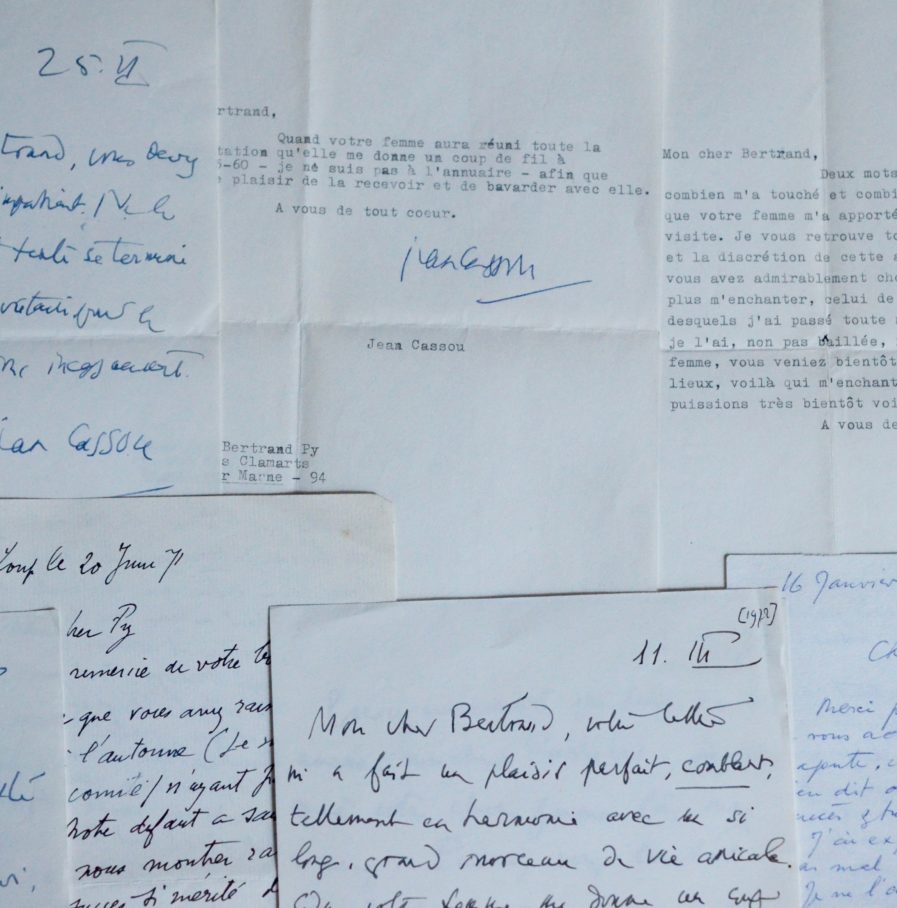 25.VI
impatient.
texte se termine
Jean Cassou
rtrand,
Quand votre femme aura réuni toute la
tation qu'elle me donne un coup de fil à
5-60 - je ne suis pas à l'annuaire - afin que
plaisir de la recevoir et de bavarder avec elle.
A vous de tout coeur.
Jean Cassou
Jean Cassou
Bertrand Py
s Clamarts
r Marne - 94
Mon cher Bertrand,
Deux mots
combien m'a touché et combi
que votre femme m'a apporté
visite. Je vous retrouve to
et la discrétion de cette a
vous avez admirablement cho
plus m'enchanter, celui de
desquels j'ai passé toute
je l'ai, non pas baillée,
femme, vous veniez bientôt
lieux, voilà qui m'enchant
puissions très bientôt voi
A vous de
Loup le 20 Juin 71
her Py
remercie de votre
que vous avez
l'automne (Le
comité/n'ayant
notre défaut a
nous montrer
succès si mérité d
[1972]
11. III
Mon cher Bertrand, votre lettre
m'a fait un plaisir parfait, comblant,
tellement en harmonie avec un si
long, grand morceau de vie amicale.
votre femme me donne un coup
16 Janvier
Ch
Merci p
vous a
ajoute,
en dit
succès
J'ai ex
mal
Je ne l'a